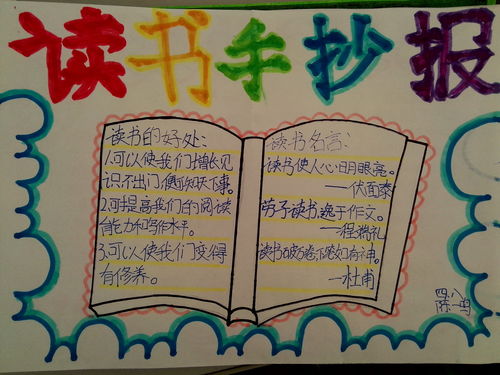 读书手抄报
读书的好处:
1.可以使我们增长见
识,不出门,便知天下事。
2.可提高我们的阅读
能力和写作水平。
3.可以使我们变得
有修养。
读书名言:
读书使人心明眼亮。
——伏
劳于读书,逸于作文。
——程端礼
读书破万卷,下笔如有神。
——杜甫
四、八
陈一鸣